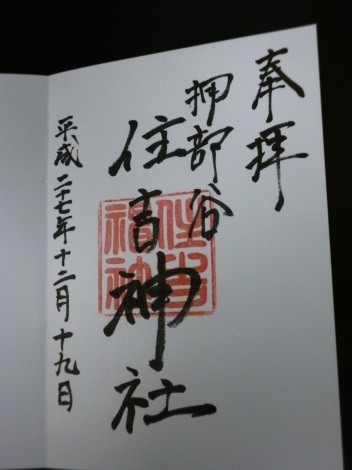 奉拝
押部谷
住吉神社
平成二十七年十二月十九日